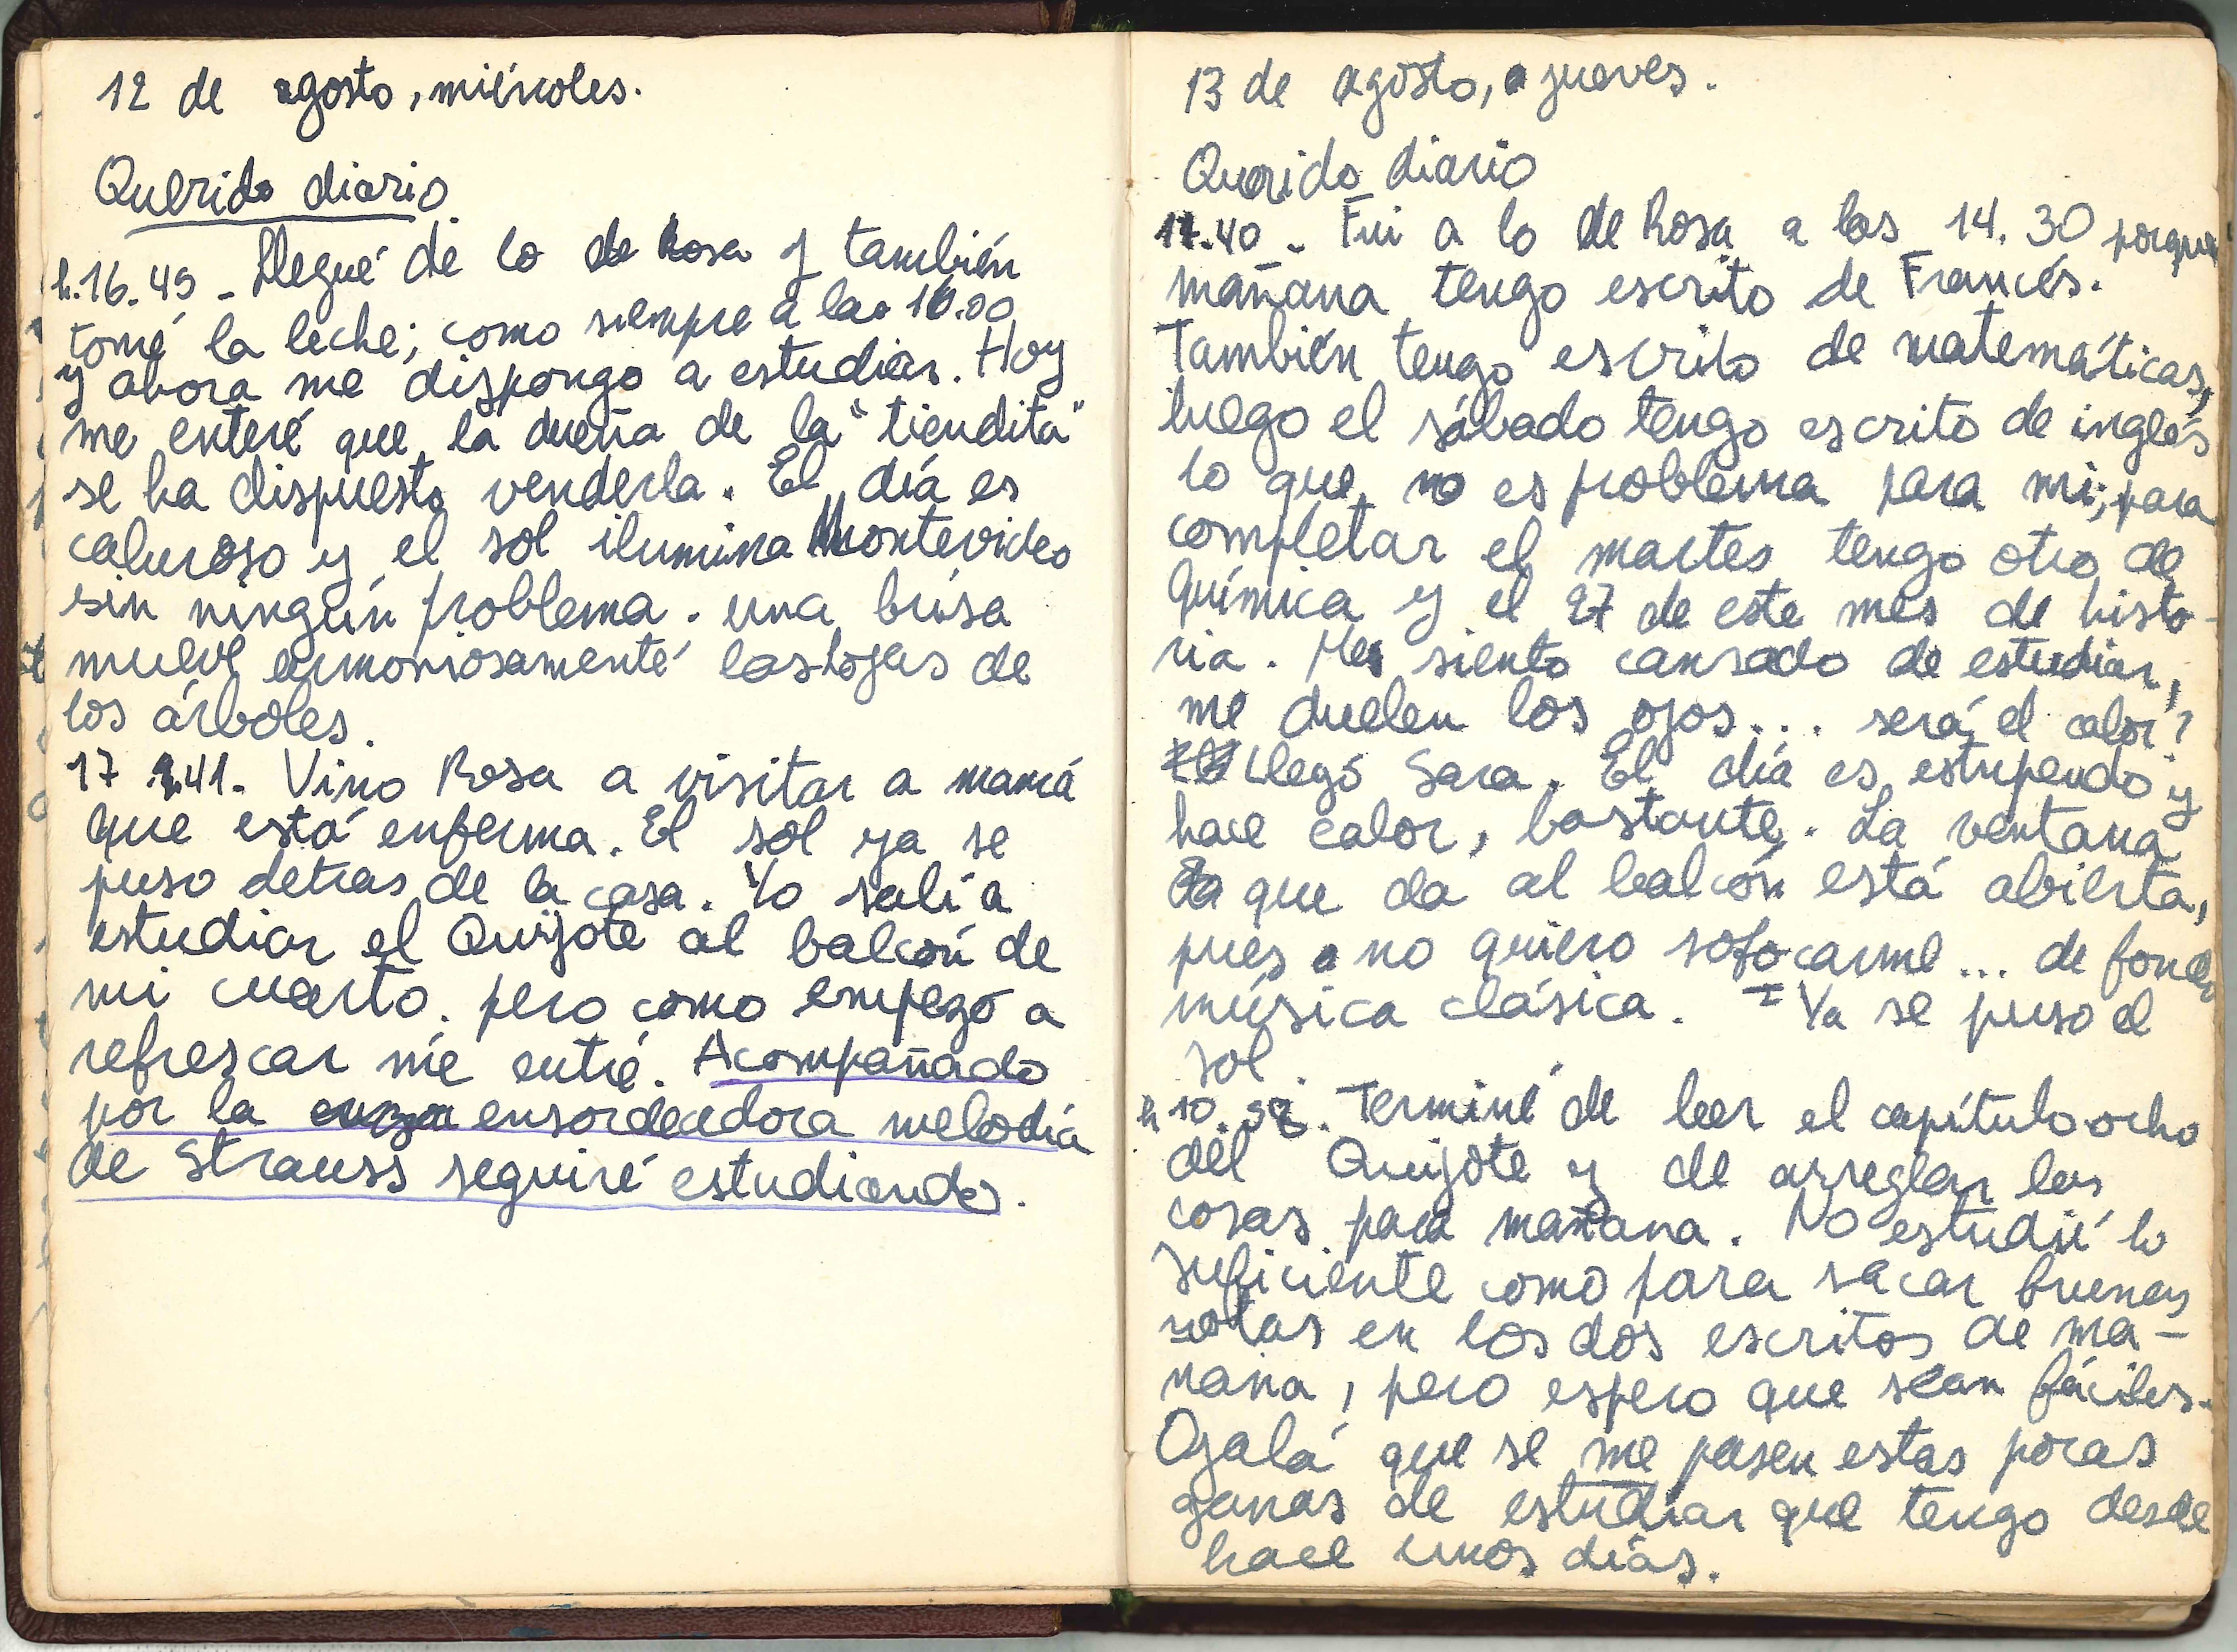 12 de agosto, miércoles.
Querido diario
h.16.45 - Llegué de lo de Rosa y también
tomé la leche; como siempre a las 16.00
y ahora me dispongo a estudiar. Hoy
me enteré que la dueña de la "tiendita"
se ha dispuesto venderla. El día es
caluroso y el sol ilumina Montevideo
sin ningún problema. una brisa
mueve armoniosamente las hojas de
los árboles.
17 41. Vino Rosa a visitar a mamá
que está enferma. El sol ya se
puso detras de la casa. Yo salí a
estudiar el Quijote al balcón de
mi cuarto. pero como empezó a
refrescar me entré. Acompañado
por la ensordecedora melodía
de Strauss seguiré estudiando.
13 de agosto, jueves.
Querido diario
17.40 - Fui a lo de Rosa a las 14.30 porque
mañana tengo escrito de Francés.
También tengo escrito de matemáticas,
luego el sábado tengo escrito de inglés
lo que no es problema para mi; para
completar el martes tengo otro de
Química y el 27 de este mes de histo-
ria. Me siento cansado de estudiar,
me duelen los ojos... será el calor?
Llegó Sara. El día es estupendo y
hace calor, bastante. La ventana
que da al balcón está abierta,
pues no quiero sofocarme... de fondo
música clásica. Ya se puso el
sol.
h 10. . Terminé de leer el capítulo ocho
del Quijote y de arreglar las
cosas para mañana. No estudié lo
suficiente como para sacar buenas
notas en los dos escritos de ma-
ñana, pero espero que sean fáciles.
Ojalá que se me pasen estas pocas
ganas de estudiar que tengo desde
hace unos días.